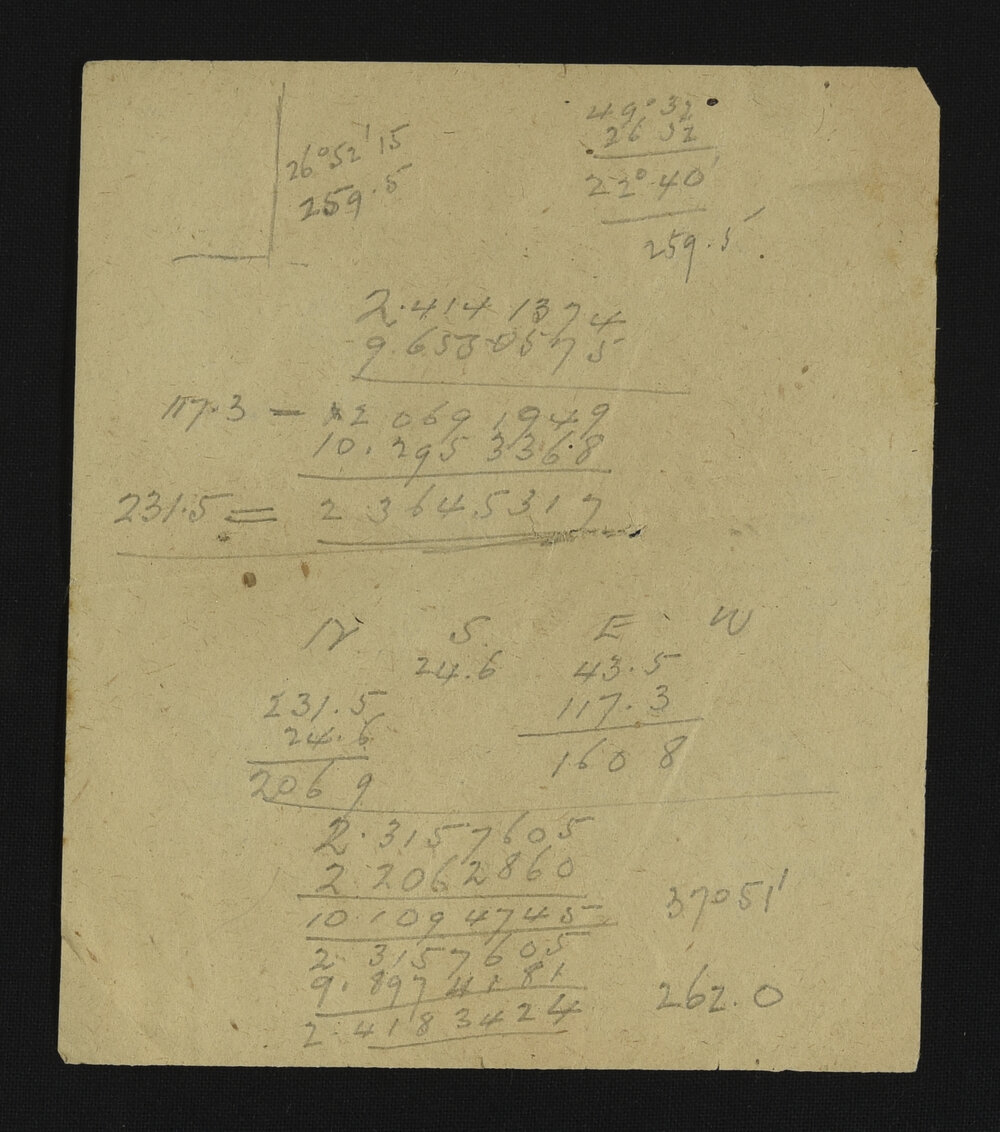 26°52'15
259.5
49°32
26 52
22°.40'
259.5
2.414 1374
9.6550575
117.3 — 12 069 1949
10.295 3368
231.5 = 2 3645317
N S. E W
24.6 43.5
231.5 117.3
24.6
2069 1608
2.3157605
2.2062860
10.1094745 37°51'
2.3157605
9.8974181 262.0
2.4183424